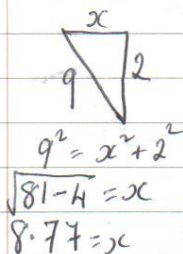 x
9 2
9² = x² + 2²
√81-4 = x
8.77 = x